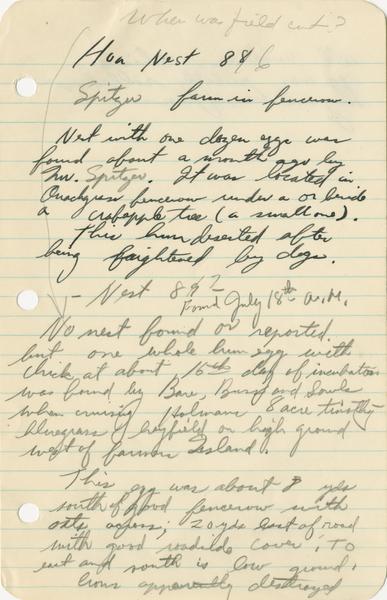 When was field cut?
Hun Nest 88
Spitzer farm in fencerow.
Nest with one dozen eggs was
found about a month ago by
Mr. Spitzer. It was located in
Quackgrass fencerow under a or beside
a crabapple tree (a small one).
This hun deserted after
being frightened by dogs.
Nest 89?
Found July 18th A.M.
No nest found or reported.
but one whole hun egg with
chick at about 16th day of incubation
was found by Bare, Buss and Sauls
when cruising Holmans 8 acre timothy
bluegrass hayfield on high ground
west of farmer Island.
This egg was about 8 yds
south of good fencerow with
oats across; 20 yds east of road
with good roadside cover; To
east and south is low ground.
huns apparently destroyed